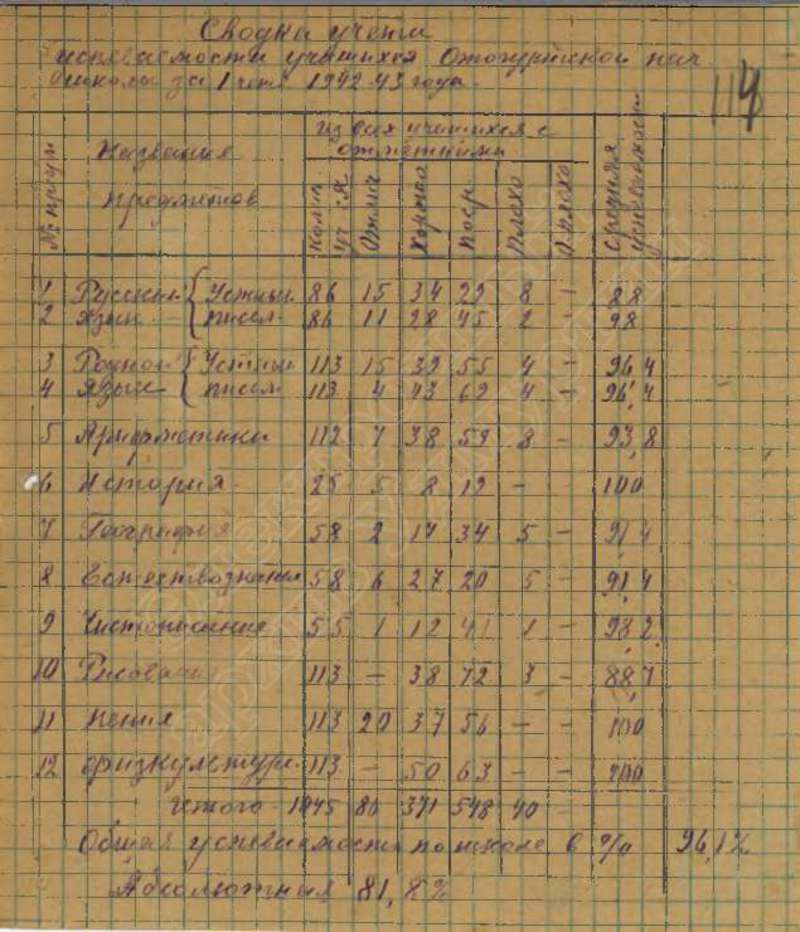 Сводка учета
успеваемости учащихся нач
школы за 1 четв 1942-43 года.
114
№ п/п Название предметов
из всех учащихся с отметками
Колич уч-ся Отлич Хорошо Поср. Плохо О.плохо Средняя успеваемость
1 Русский { Устный 86 15 34 29 8 - 88
2 язык { писм. 86 11 28 45 2 - 98
3 Родной { Устный 113 15 39 55 4 - 96,4
4 язык { писм 113 4 43 62 4 - 96,4
5 Арифметика 112 7 38 59 8 - 93,8
6 История 25 5 8 12 - 100
7 География 58 2 17 34 5 - 91,4
8 Естествознание 58 6 27 20 5 - 91,4
9 Чистописание 55 1 12 41 1 - 98,2
10 Рисование 113 - 38 72 3 - 88,7
11 Пения 113 20 37 56 - - 100
12 Физкультура 113 - 50 63 - - 100
Итого 1045 86 371 548 40
Общая успеваемость по школе в % 96,1%
Абсолютная 81,8%